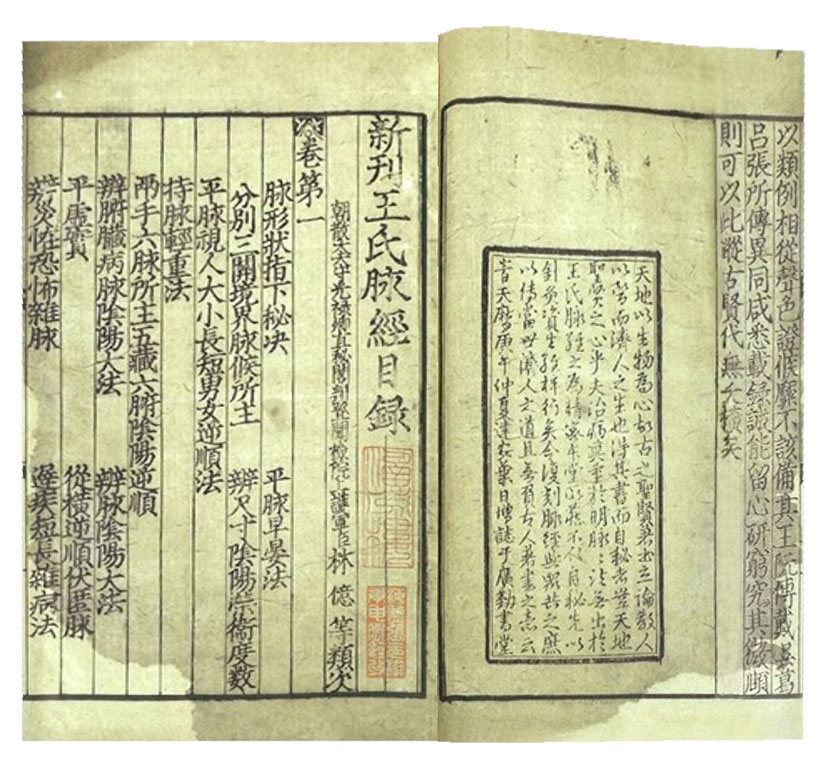 以類例相從聲色證候靡不該備其王阮傅戴吳葛
呂張所傳異同咸悉載録誠能留心研窮究其微賾
則可以比蹤古賢代無夭橫矣
天地以生物為心故古之聖賢著書立論教人
以濟人之生也得其書而自秘者豈天地
聖賢之心乎夫治病莫重於明脉脉法無出於
王氏脉經之為精密本堂所藏不敢自秘先以
針灸資生經梓行矣今復刻脉經與眾共之庶
以傳當世濟人之道且無負古人著書之意云
旹天曆庚午仲夏建安葉日增誌于廣勤書堂
新刊王氏脉經目録
朝散大夫守光祿卿直秘閣判登聞檢院上護軍臣林億等類次
卷第一
脉形狀指下秘决 平脉早晏法
分別三關境界脉候所主 辨尺寸陰陽榮衛度數
平脉視人大小長短男女逆順法
持脉輕重法
兩手六脉所主五藏六腑陰陽逆順
辨腑臟病脉陰陽大法 辨脉陰陽大法
平虛實 從橫逆順伏匿脉
辨災怪恐怖雜脉 遲疾短長雜病法